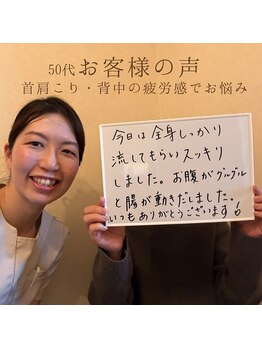 50代お客様の声
首肩こり・背中の疲労感でお悩み
今日は全身しっかり
流してもらいスッキリ
しました。お腹がグルグル
と腸が動きだしました。
いつもありがとうございます!